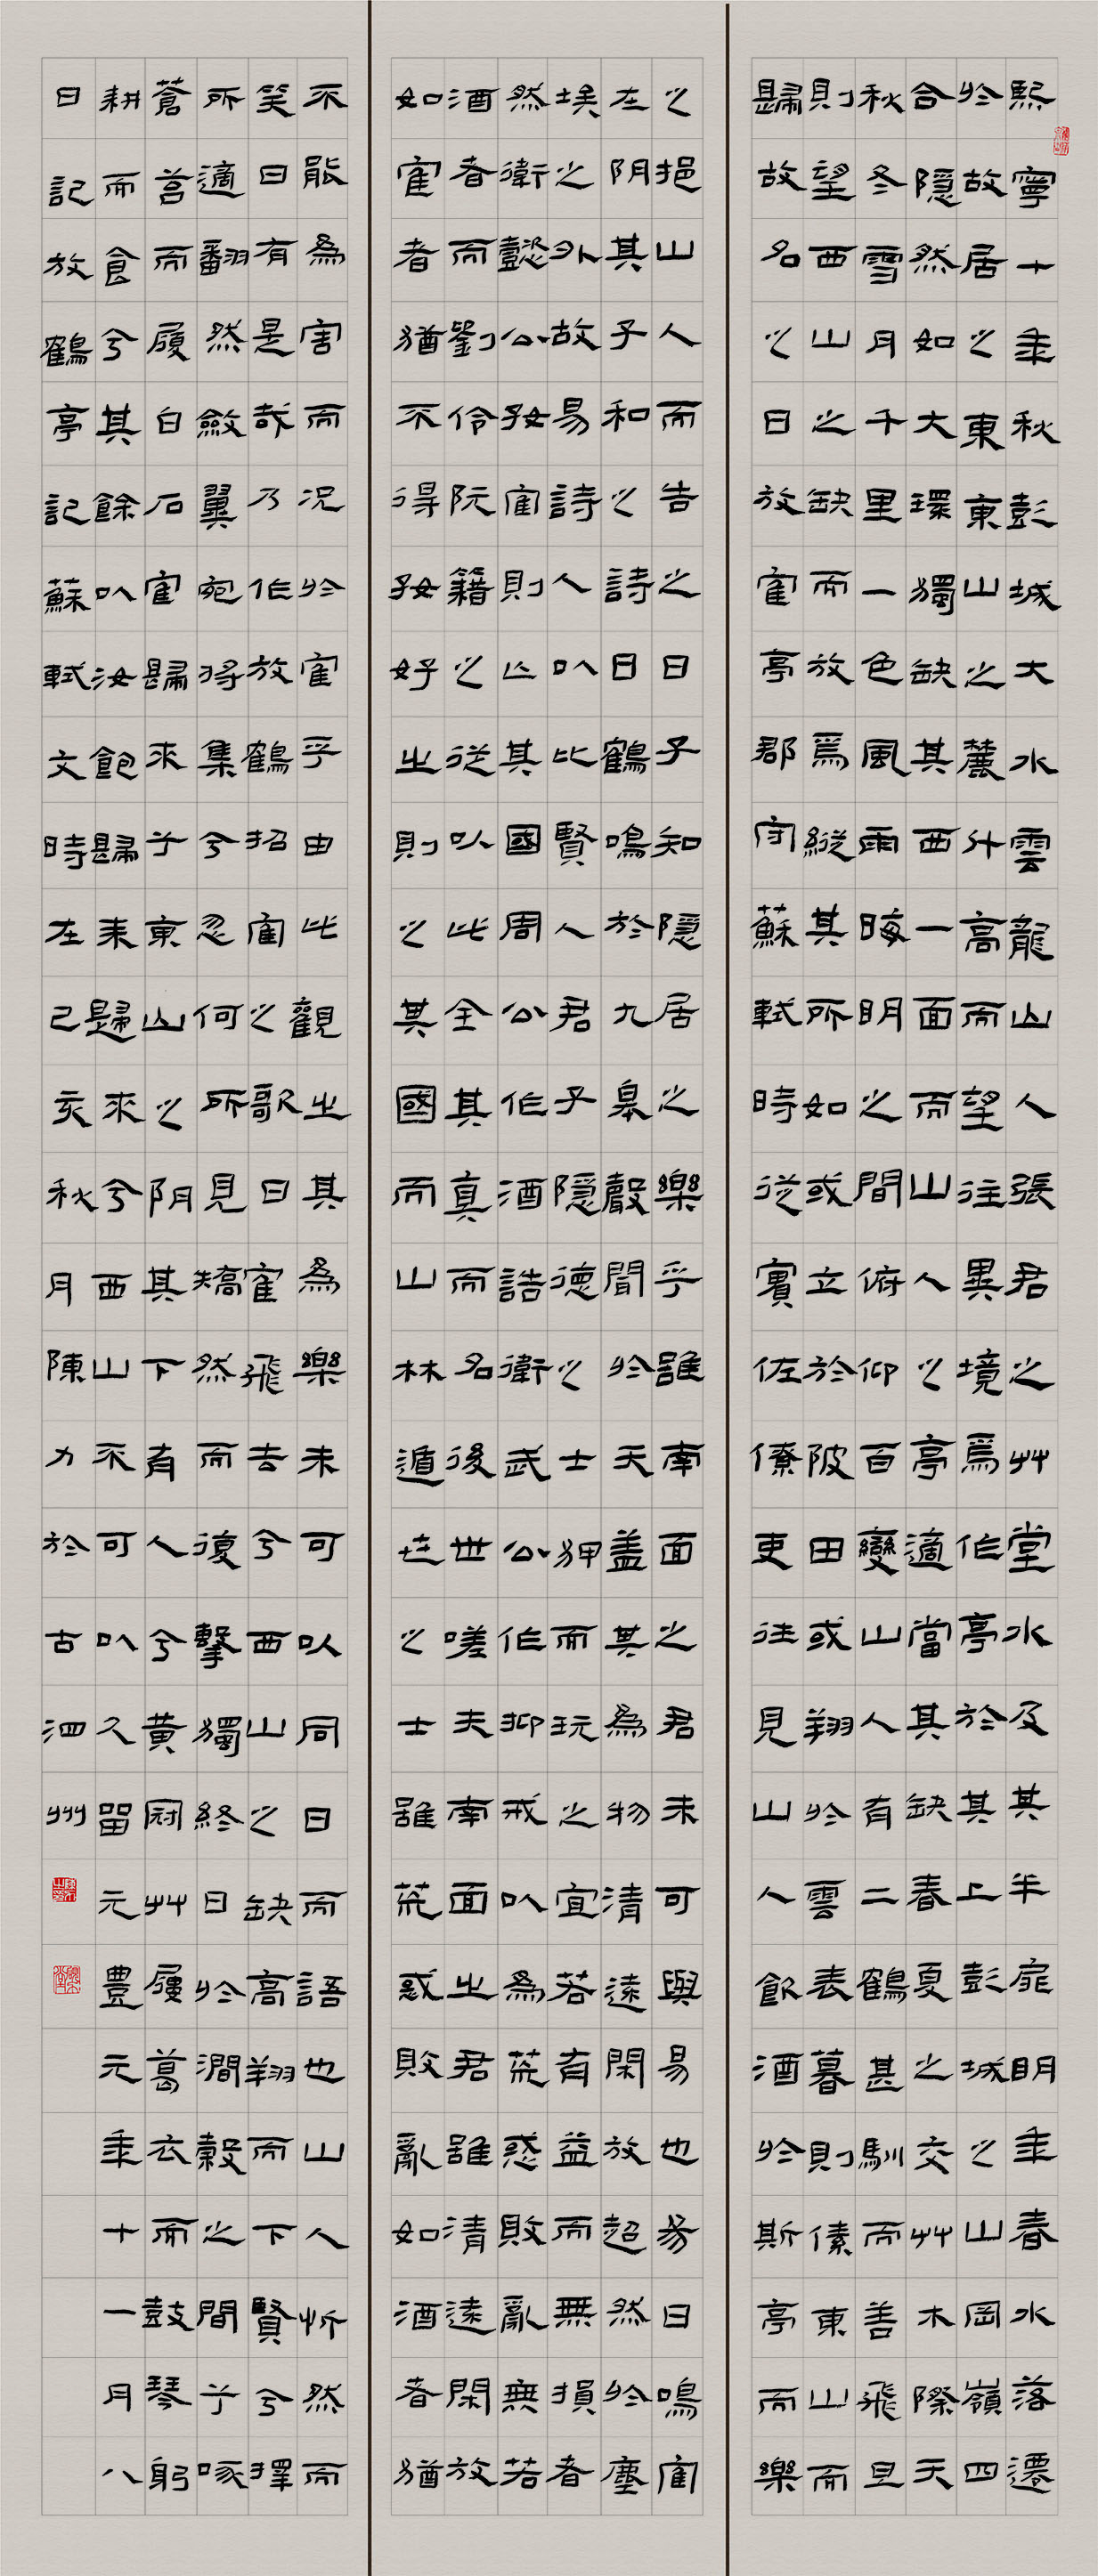 熙寧十年秋彭城大水雲龍山人張君之艸堂水及其半扉明年春水落遷
於故居之東東山之麓升高而望往異境焉作亭於其上彭城之山岡嶺四
合隱然如大環獨缺其西一面而山人之亭適當其缺春夏之交艸木際天
秋冬雪月千里一色風雨晦明之間俯仰百變山人有二鶴甚馴而善飛旦
則望西山之缺而放焉縱其所如或立於陂田或翔於雲表暮則傃東山而
歸故名之曰放隺亭郡守蘇軾時從賓佐僚吏往見山人飲酒於斯亭而樂
之挹山人而告之曰子知隱居之樂乎雖南面之君未可與易也易曰鳴隺
在阴其子和之詩曰鶴鳴於九皋聲聞於天盖其為物清遠閑放超然於塵
埃之外故易詩人以比賢人君子隱德之士狎而玩之宜若有益而無損者
然衛懿公好隺則亡其國周公作酒誥衛武公作抑戒以為荒惑敗亂無若
酒者而劉伶阮籍之從以此全其真而名後世嗟夫南面之君雖清遠閑放
如隺者猶不得好好之則亡其國而山林遁世之士雖荒惑敗亂如酒者猶
不能為害而況於隺乎由此觀之其為樂未可以同日而語也山人忻然而
笑曰有是哉乃作放鶴招隺之歌曰隺飛去兮西山之缺高翔而下賢兮擇
所適翻然斂翼宛將集兮忽何所見矯然而復擊獨終日於澗穀之間兮啄
蒼苔而履白石隺歸來兮東山之阴其下有人兮黃冠艸屨葛衣而鼓琴躬
耕而食兮其餘以汝飽歸來歸來兮西山不可以久留元豐元年十一月八
日記放鶴亭記蘇軾文時在己亥秋月陳力於古泗州